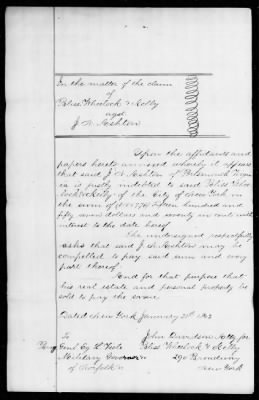 In the matter of the claim
of
Bliss Wheelock & Kelly
agst
J. A. Ashton
Upon the affidavits and
papers hereto annexed whereby it appears
that said J. A. Ashton of Portsmouth Virgin
ia is justly indebted to said Bliss Whee
lock & Kelly of the City of New York in
the sum of hundred and
fifty seven dollars and seventy six cents with
interest to the date hereof
The undersigned respectfully
asks that said J. A. Ashton may be
compelled to pay said sum and every
part thereof.
And for that purpose that
his real estate and personal property be
sold to pay the same.
Dated New York January 21st 1863
To John Davidson Atty for
Brig Genl E. L. Viele Bliss Wheelock & Kelly
Military Governor 290 Broadway
of Norfolk New York